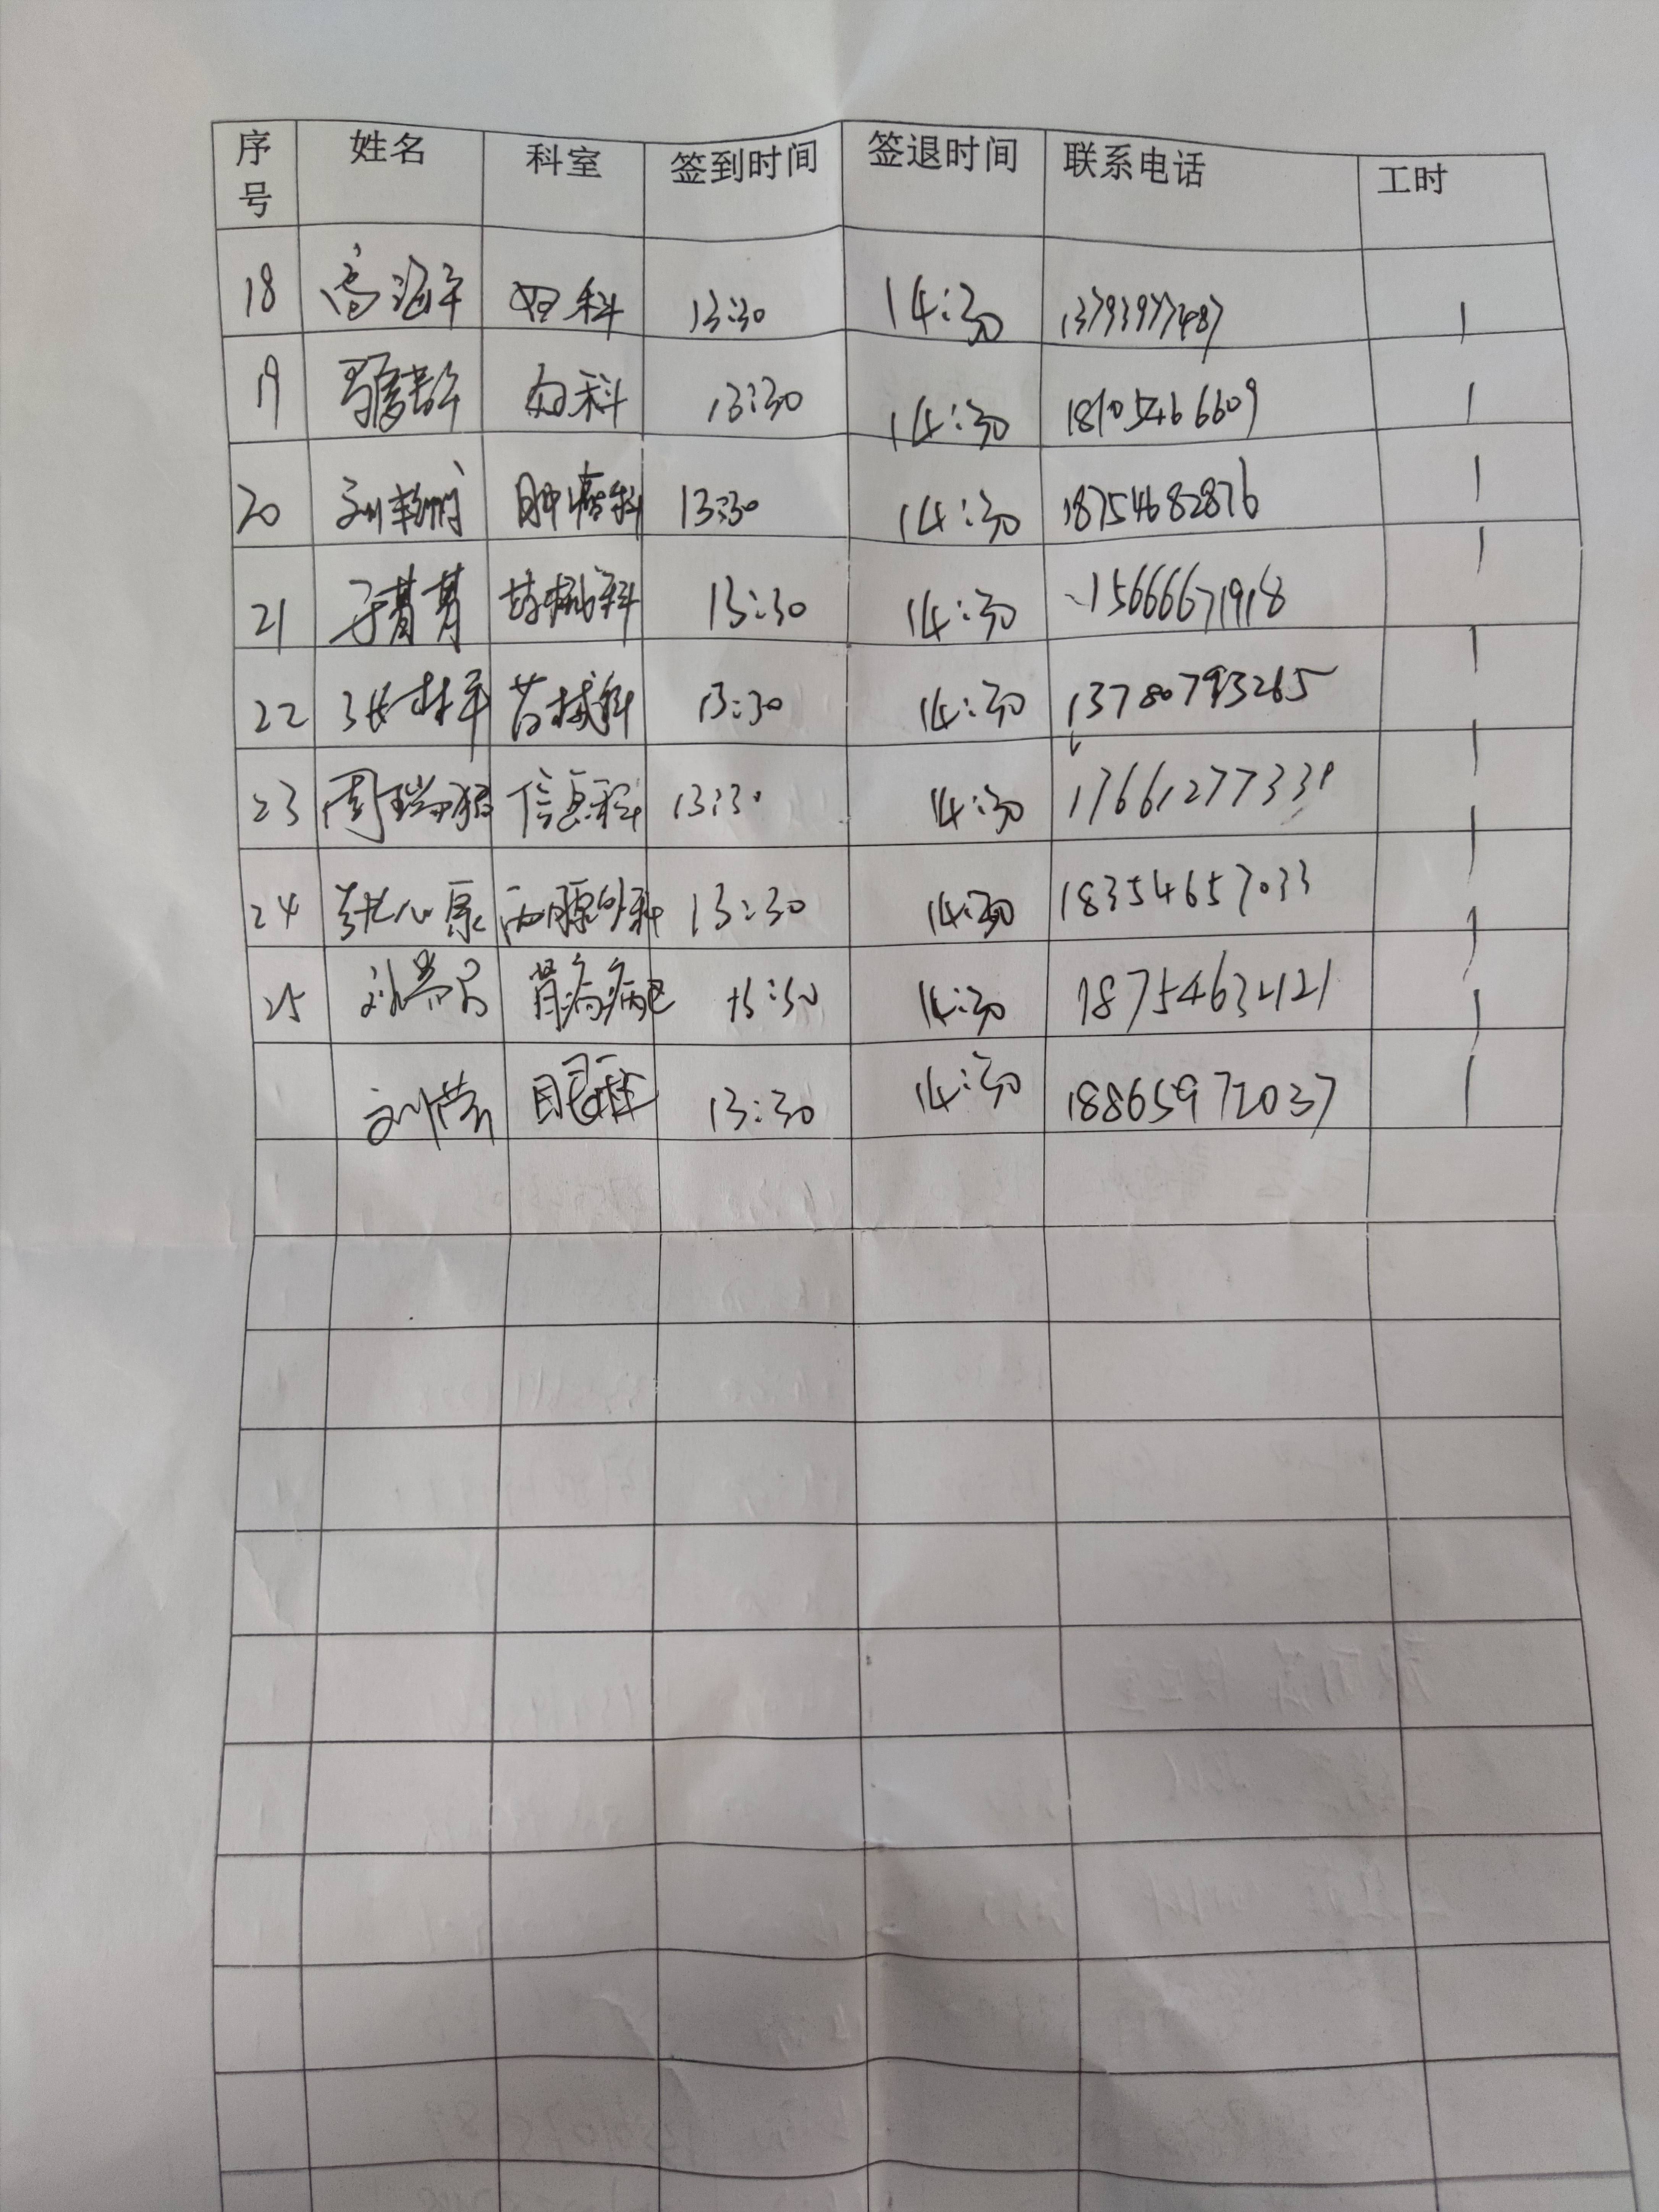 序号 姓名 科室 签到时间 签退时间 联系电话 工时
18 高海军 妇科 13:30 14:30 13793977487 1
19 妇科 13:30 14:30 18105466609 1
20 刘 肿瘤科 13:30 14:30 18754682876 1
21 于菁菁 药械科 13:30 14:30 15666671918 1
22 张林军 药械科 13:30 14:30 13780793265 1
23 周瑞 信息科 13:30 14:30 1
24 张心原 两腺外科 13:30 14:30 18354657033 1
25 刘 胃病病区 13:30 14:30 1
刘营 眼科 13:30 14:30 18865972037 1